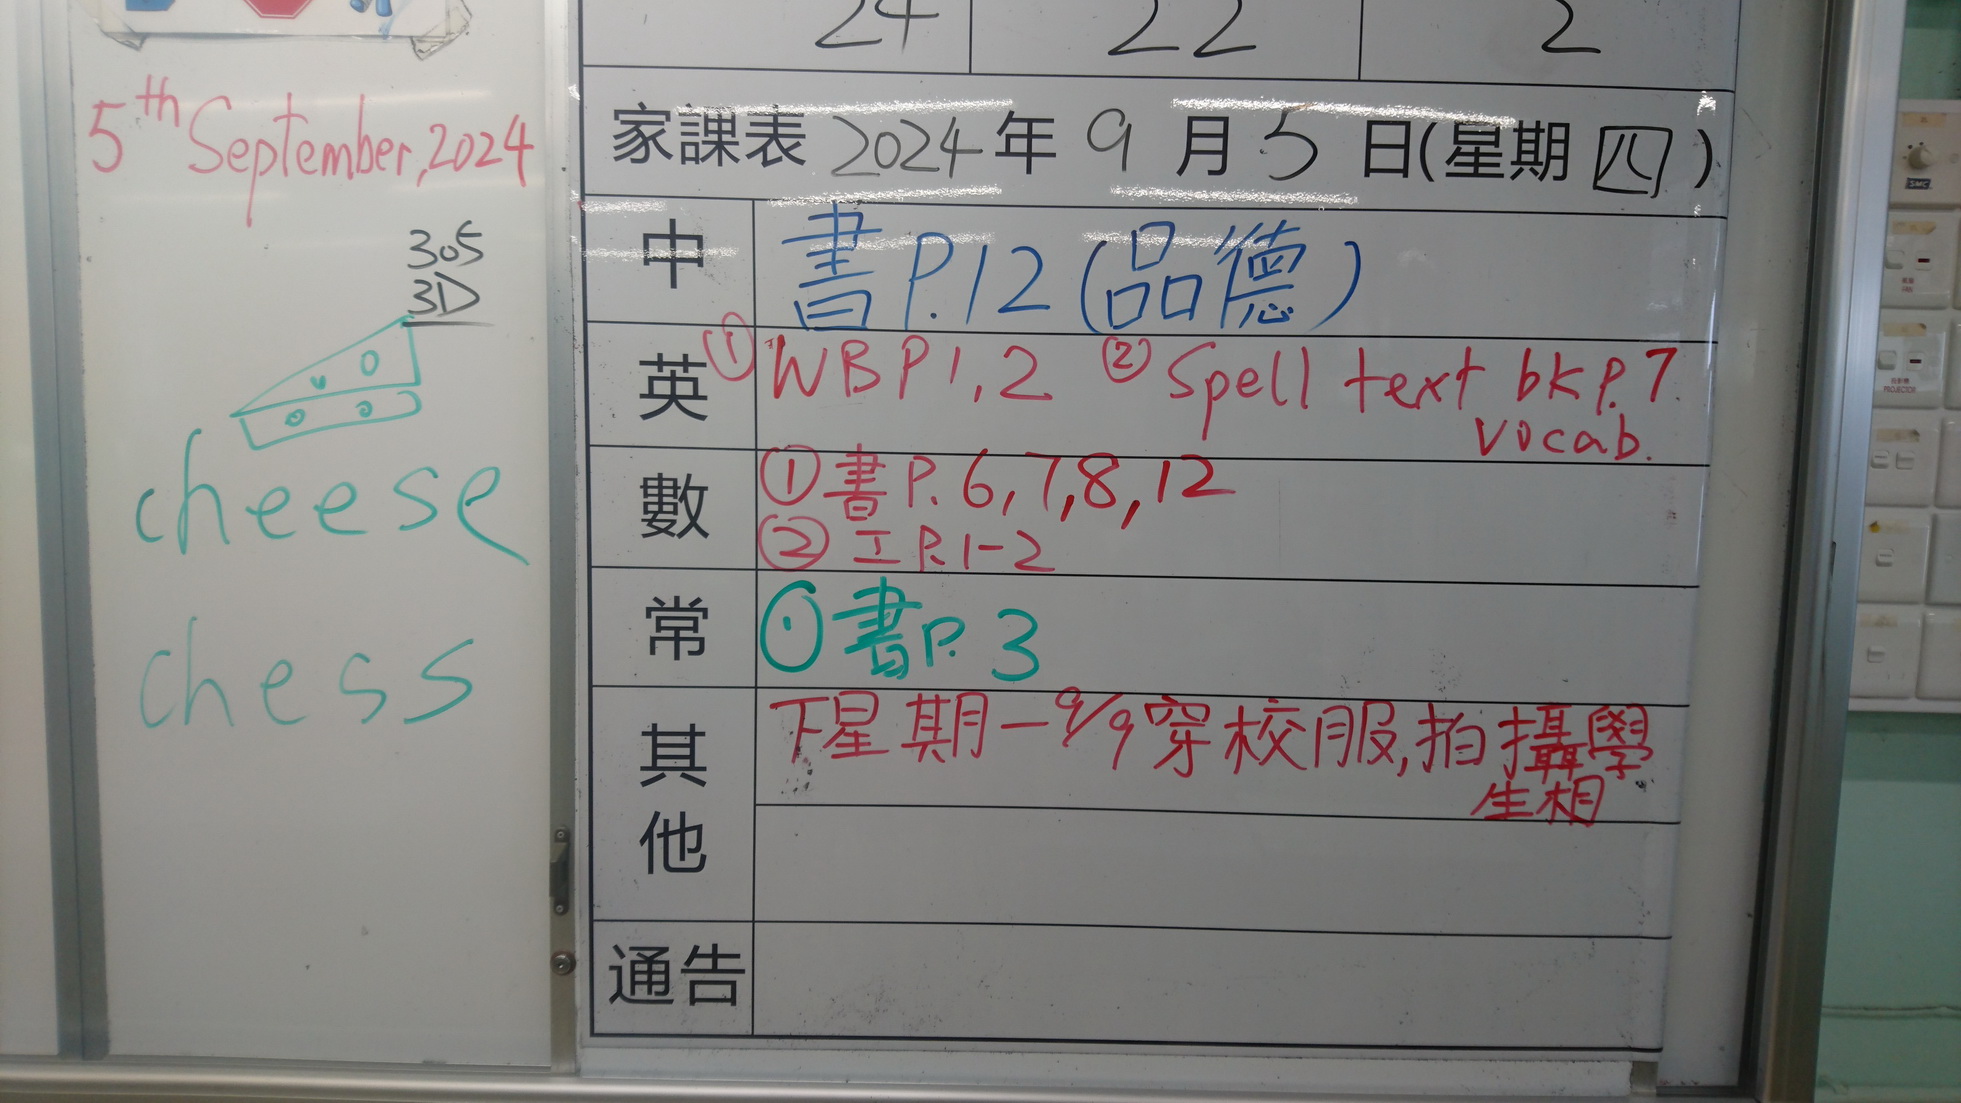 5th September, 2024
305
3D
cheese
chess
24 22 2
家課表 2024年 9 月 5 日(星期 四 )
中 書 P.12 (品德)
英 ① WB P 1, 2 ② Spell text bk P. 7
vocab.
數 ① 書 P. 6, 7, 8, 12
② 工 P. 1-2
常 ① 書 P. 3
其他 下星期一 9/9 穿校服, 拍攝學
生相
通告